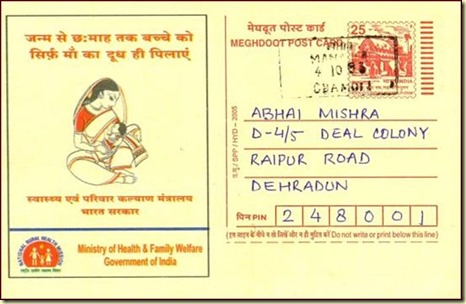 जन्म से छ:माह तक बच्चे को
सिर्फ़ माँ का दूध ही पिलाएं
स्वास्थ्य एवं परिवार कल्याण मंत्रालय
भारत सरकार
Ministry of Health & Family Welfare
Government of India
मेघदूत पोस्ट कार्ड
MEGHDOOT POST CARD
25
4 10
ABHAI MISHRA
D-4/5 DEAL COLONY
RAIPUR ROAD
DEHRADUN
पिन PIN 248001
(इस लाइन के नीचे न तो लिखें और न ही मुद्रित करें Do not write or print below this line)